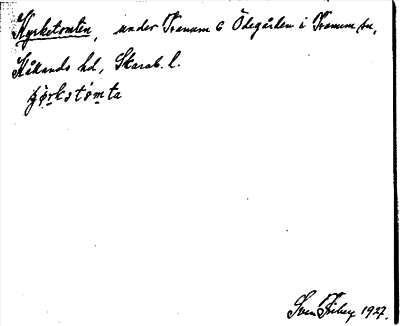 Kyrketomten, under Tranum 6 Ödegården i Tranum sn,
Kållands hd, Skarab. l.
Sven Fileen 1927.